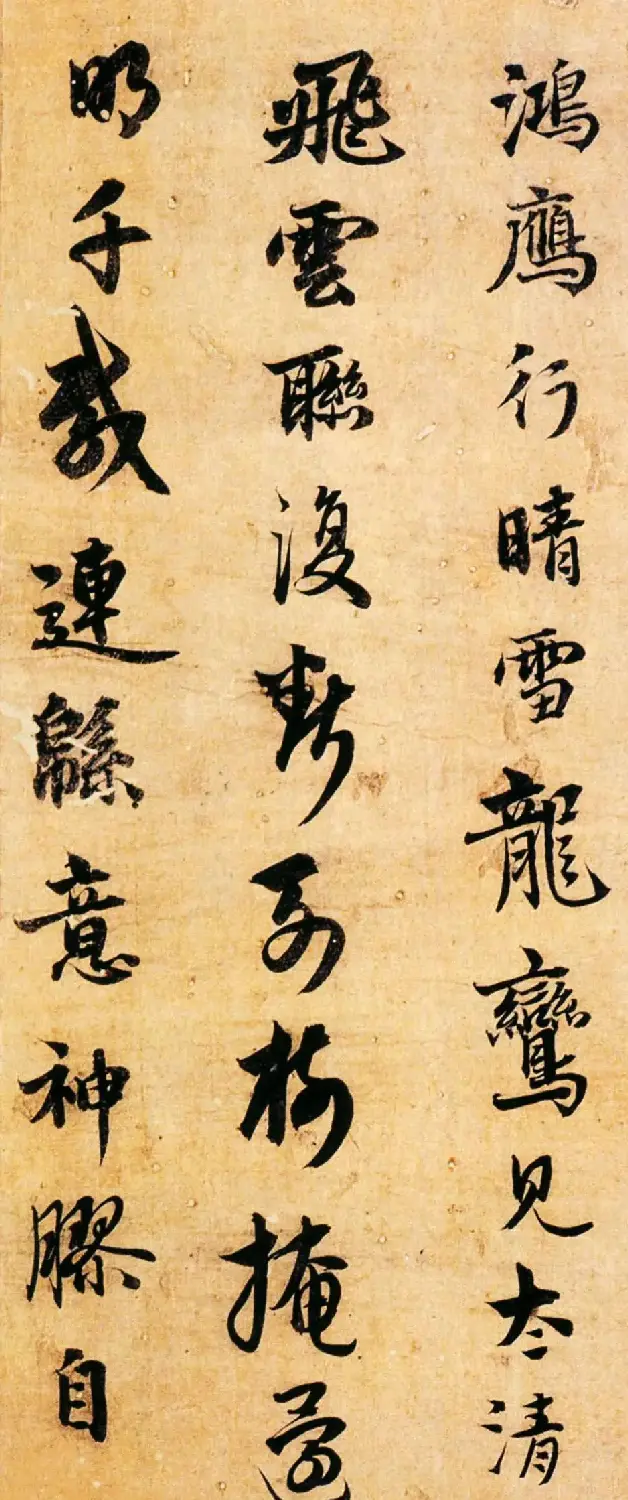 鴻鷹行晴雪龍鸞見太清
飛雲聯復斷樹掩還
明千載連緜意神膠自